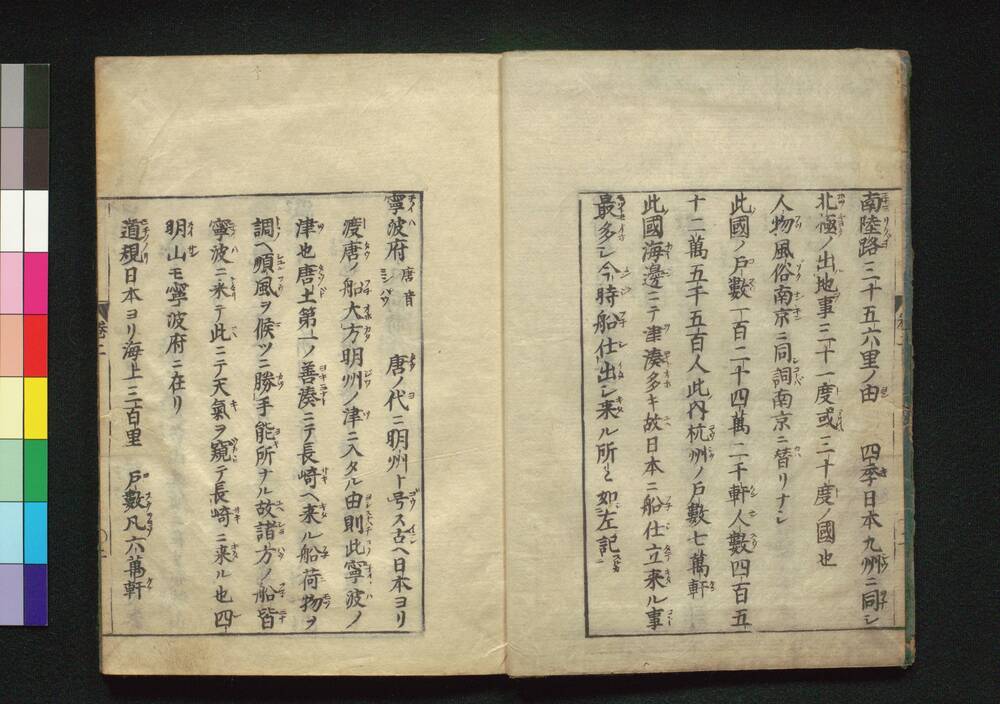 南陸路三十五六里ノ由　四季日本九州ニ同シ
北極ノ出地事三十一度或三十度ノ國也
人物風俗南京ニ同詞南京ニ替リナシ
此國ノ戸數一百二十四萬二千軒人數四百五
十二萬五千五百人此内杭州ノ戸數七萬軒
此國海邊ニテ津湊多キ故日本ニ船仕立来ル事
最多シ今時船仕出シ来ル所々如左記
寧波府 唐音ニンパウ 唐ノ代ニ明州ト号ス古ヘ日本ヨリ
渡唐ノ船大方明州ノ津ニ入タル由則此寧波ノ
津也唐土第一ノ善湊ニテ長崎ヘ来ル船荷物ヲ
調ヘ順風ヲ候ツニ勝手能所ナル故諸方ノ船皆
寧波ニ来テ此ニテ天氣ヲ窺テ長崎ニ来ル也四
明山モ寧波府ニ在リ
道規日本ヨリ海上三百里　戸數凡六萬軒
卷二